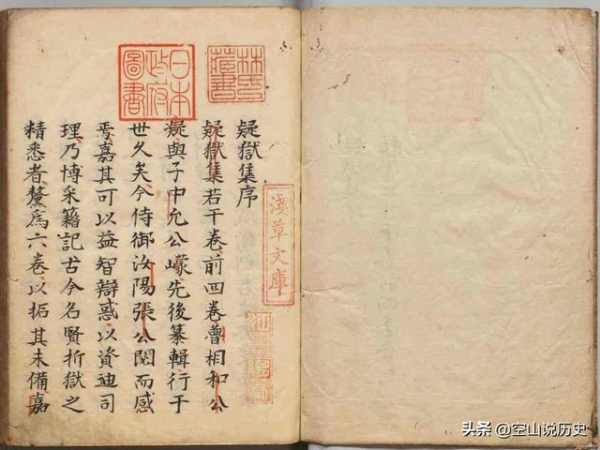 日本政府圖書
林氏藏書
疑獄集序
疑獄集若干卷前四卷曾相和公
凝與子中允公㠓先後纂輯行于
世久矣今侍御汝陽張公閱而感
焉嘉其可以益智辯惑以資迪司
理乃博采籍記古今名賢折獄之
精悉者釐爲六卷以拓其未備嘉
淺草文庫
头条 @空山说历史